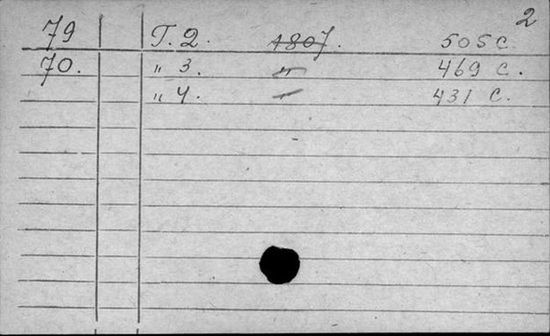 2
79 Т. 2. 1807. 505 с.
70. „ 3. „ 469 с.
„ 4. „ 431 с.